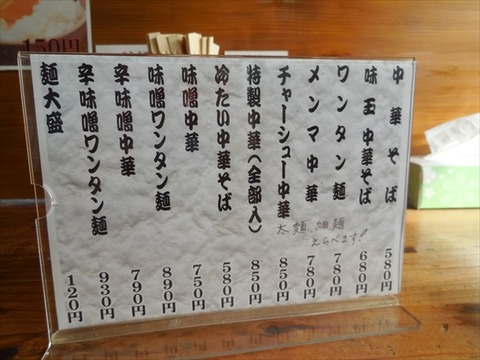 中華そば 580円
味玉中華そば 680円
ワンタン麺 780円
メンマ中華 780円
チャーシュー中華 850円
太麺、細麺
えらべます!
特製中華(全部入) 850円
冷たい中華そば 580円
味噌中華 750円
味噌ワンタン麺 890円
辛味噌中華 790円
辛味噌ワンタン麺 930円
麺大盛 120円
150円